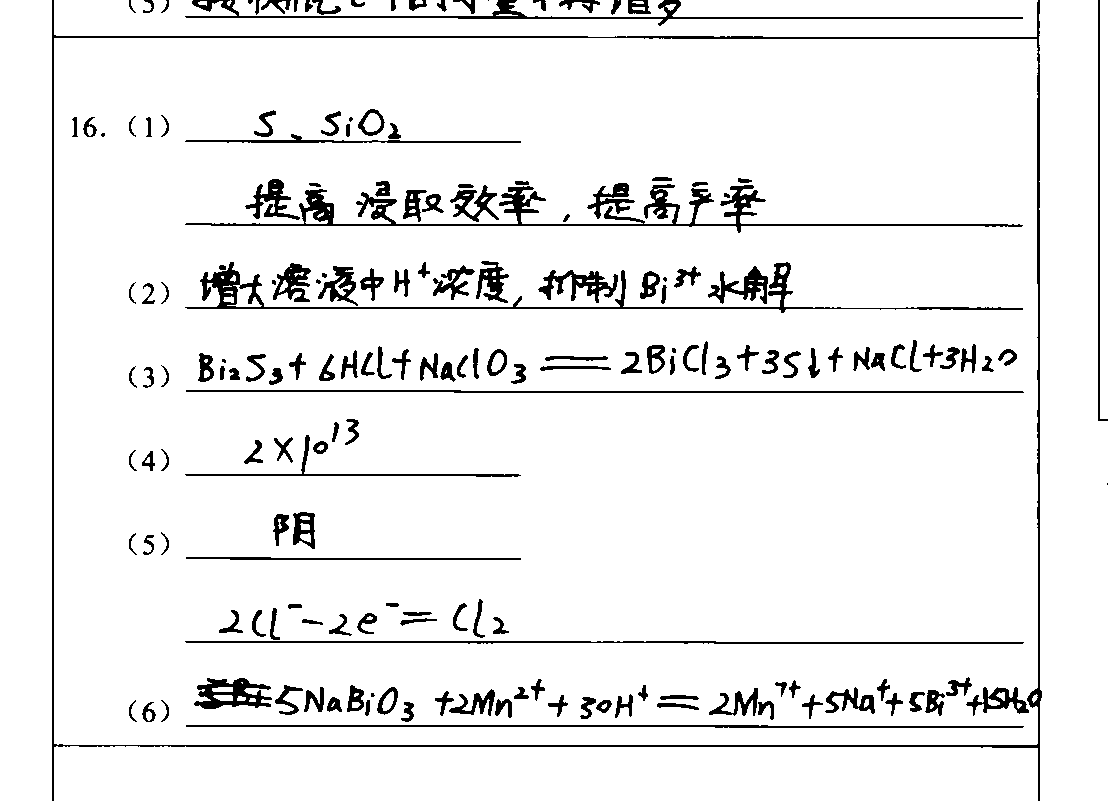 (5)
16. (1) S、SiO₂
提高浸取效率，提高产率
(2) 增大溶液中H⁺浓度，抑制Bi³⁺水解
(3) Bi₂S₃+6HCl+NaClO₃══2BiCl₃+3S↓+NaCl+3H₂O
(4) 2×10¹³
(5) 阴
2Cl⁻-2e⁻=Cl₂
(6) 5NaBiO₃+2Mn²⁺+30H⁺══2Mn⁷⁺+5Na⁺+5Bi³⁺+15H₂O